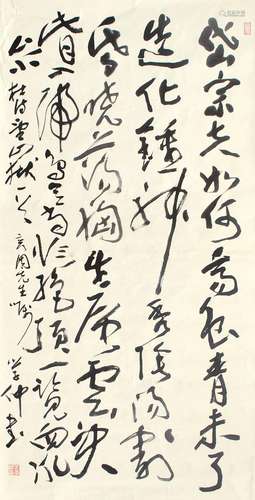 岱宗夫如何齊魯青未了
造化鍾神秀陰陽割
昏曉蕩胸生層雲決
眥入歸鳥會當絕頂一覽眾
山小 杜詩望嶽一首 先生囑
學仲書